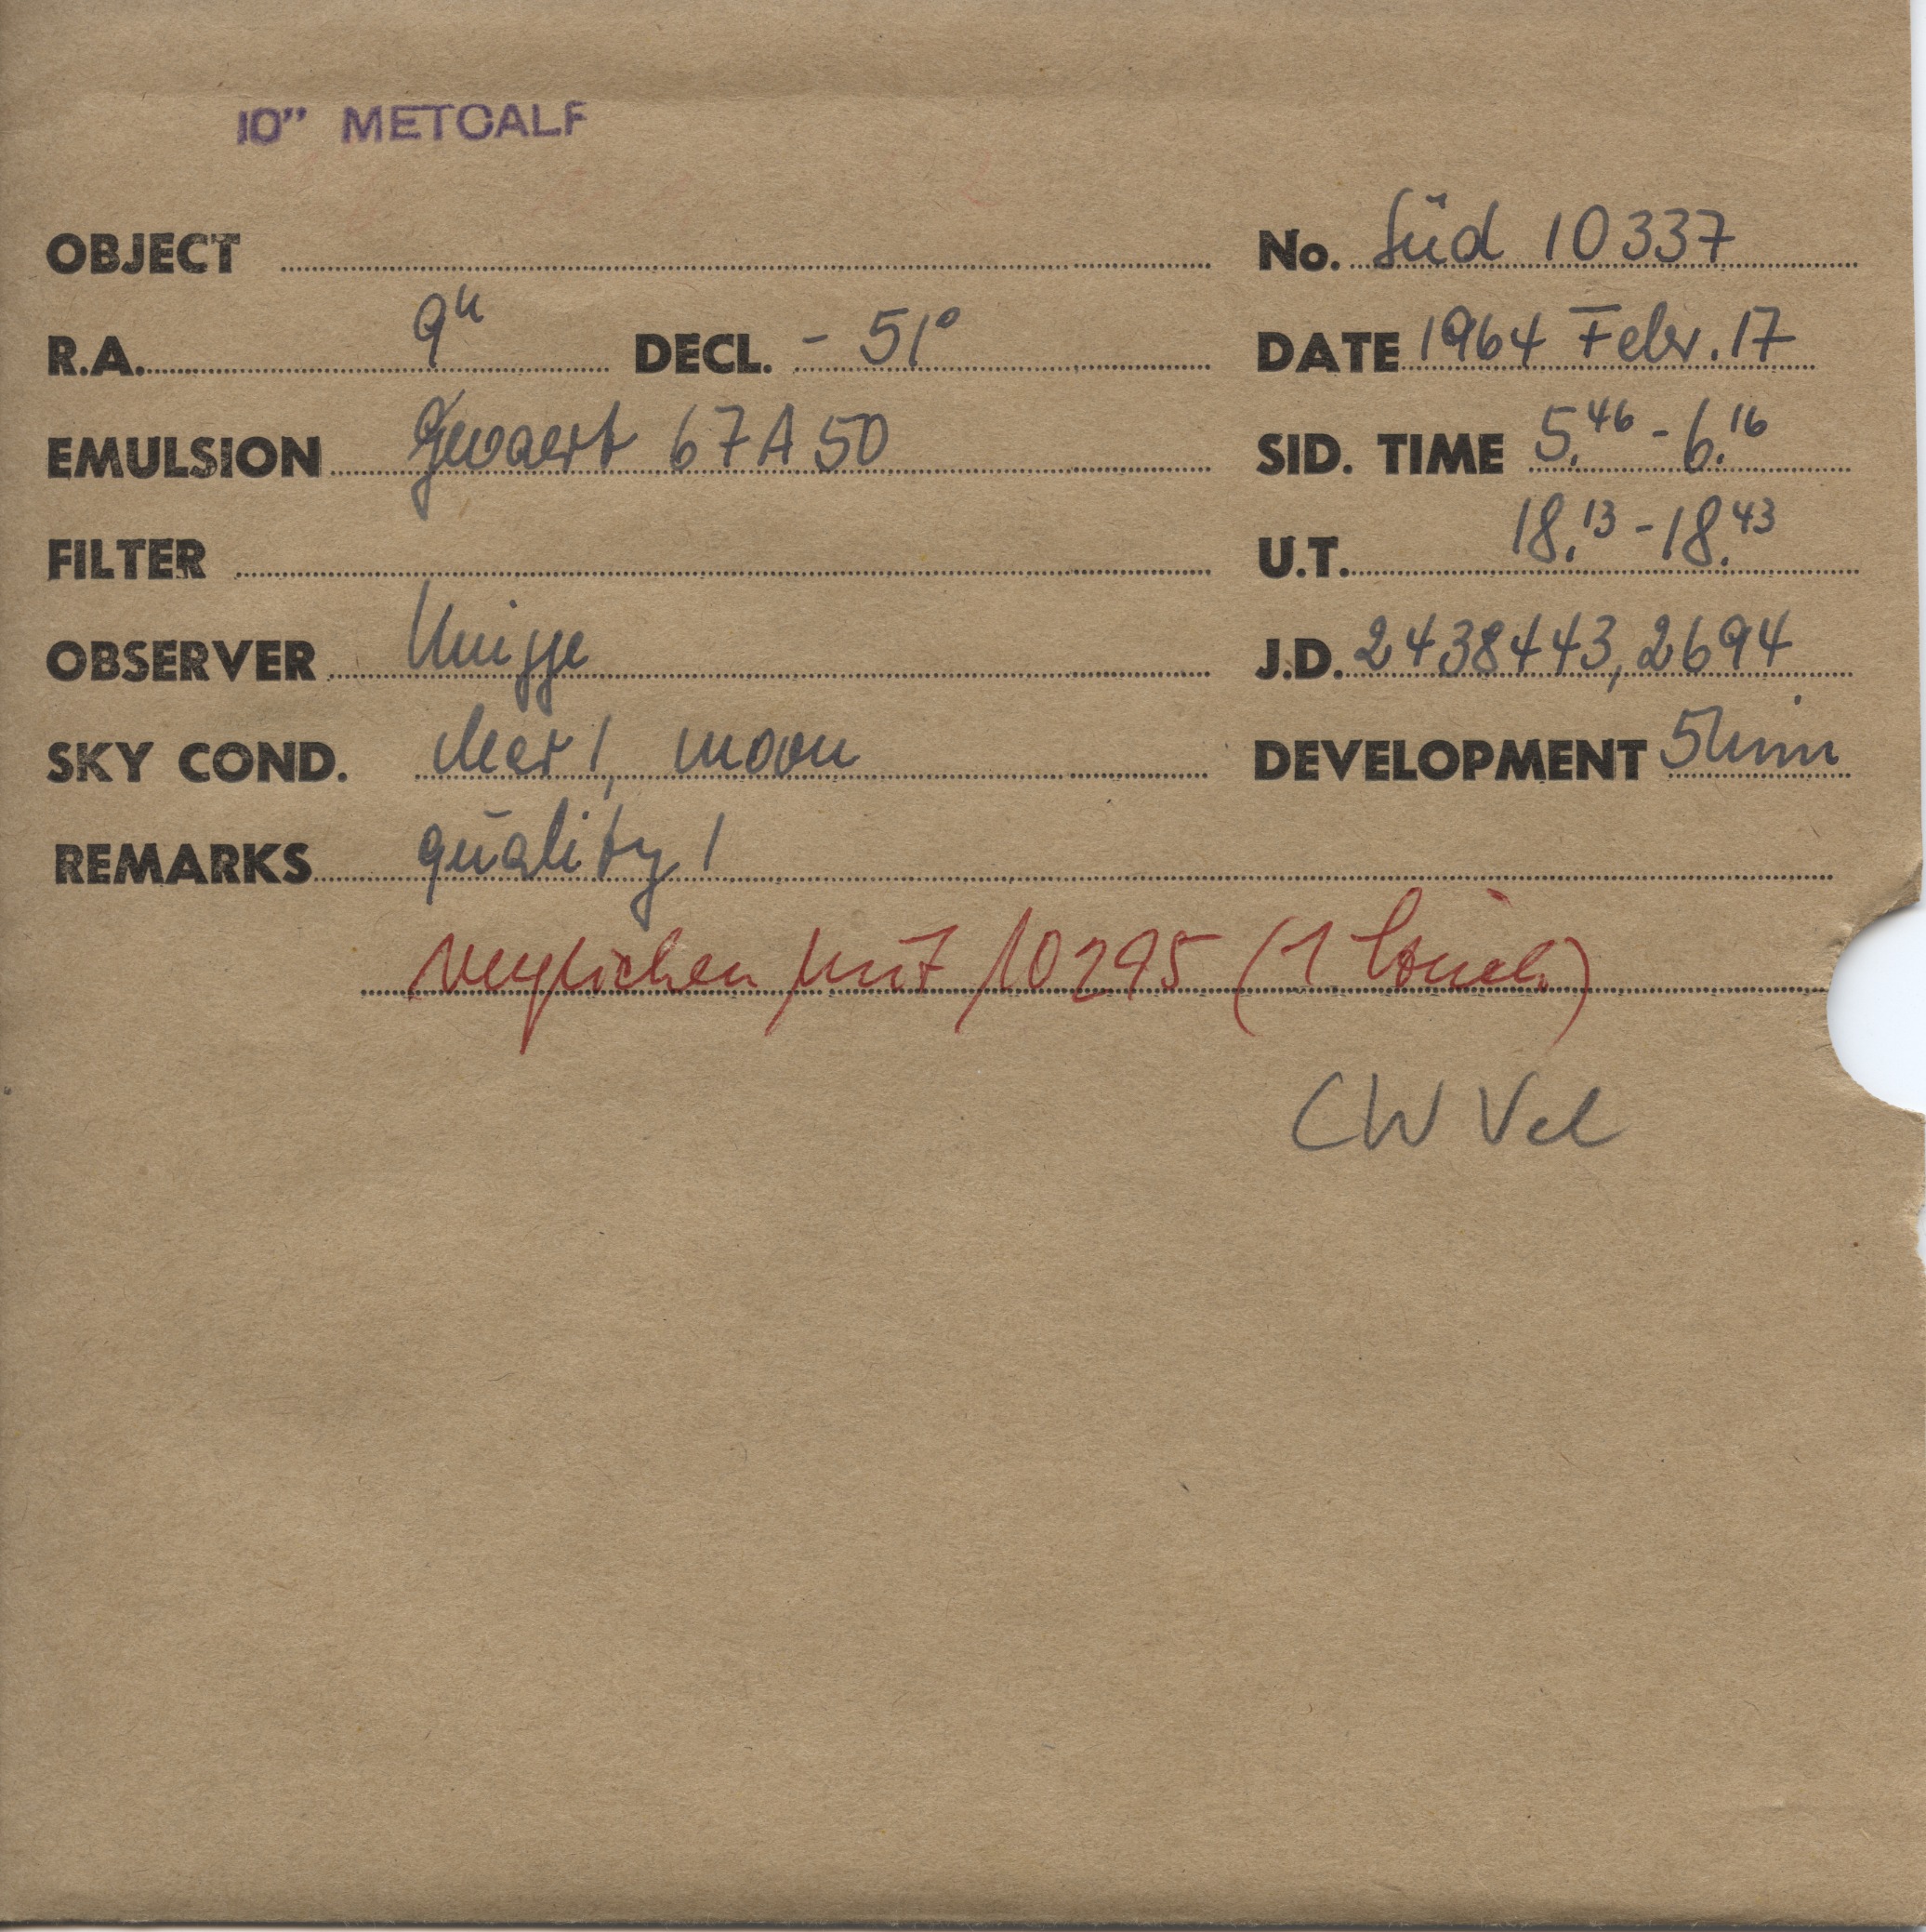 10" METCALF
OBJECT No. Süd 10337
R.A. 9h DECL. - 51° DATE 1964 Febr. 17
EMULSION Gevaert 67A50 SID. TIME 5.46 - 6.16
FILTER U.T. 18.13 - 18.43
OBSERVER Knigge J.D. 2438443,2694
SKY COND. clear 1, moon DEVELOPMENT 5 min
REMARKS quality 1
verglichen mit 10295 (1
CW Vel